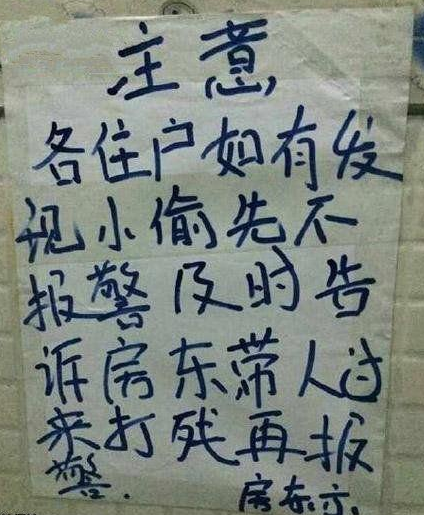 主意
各住户如有发
现小偷先不
报警及时告
诉房东带人过
来打残再报
警.
房东示.